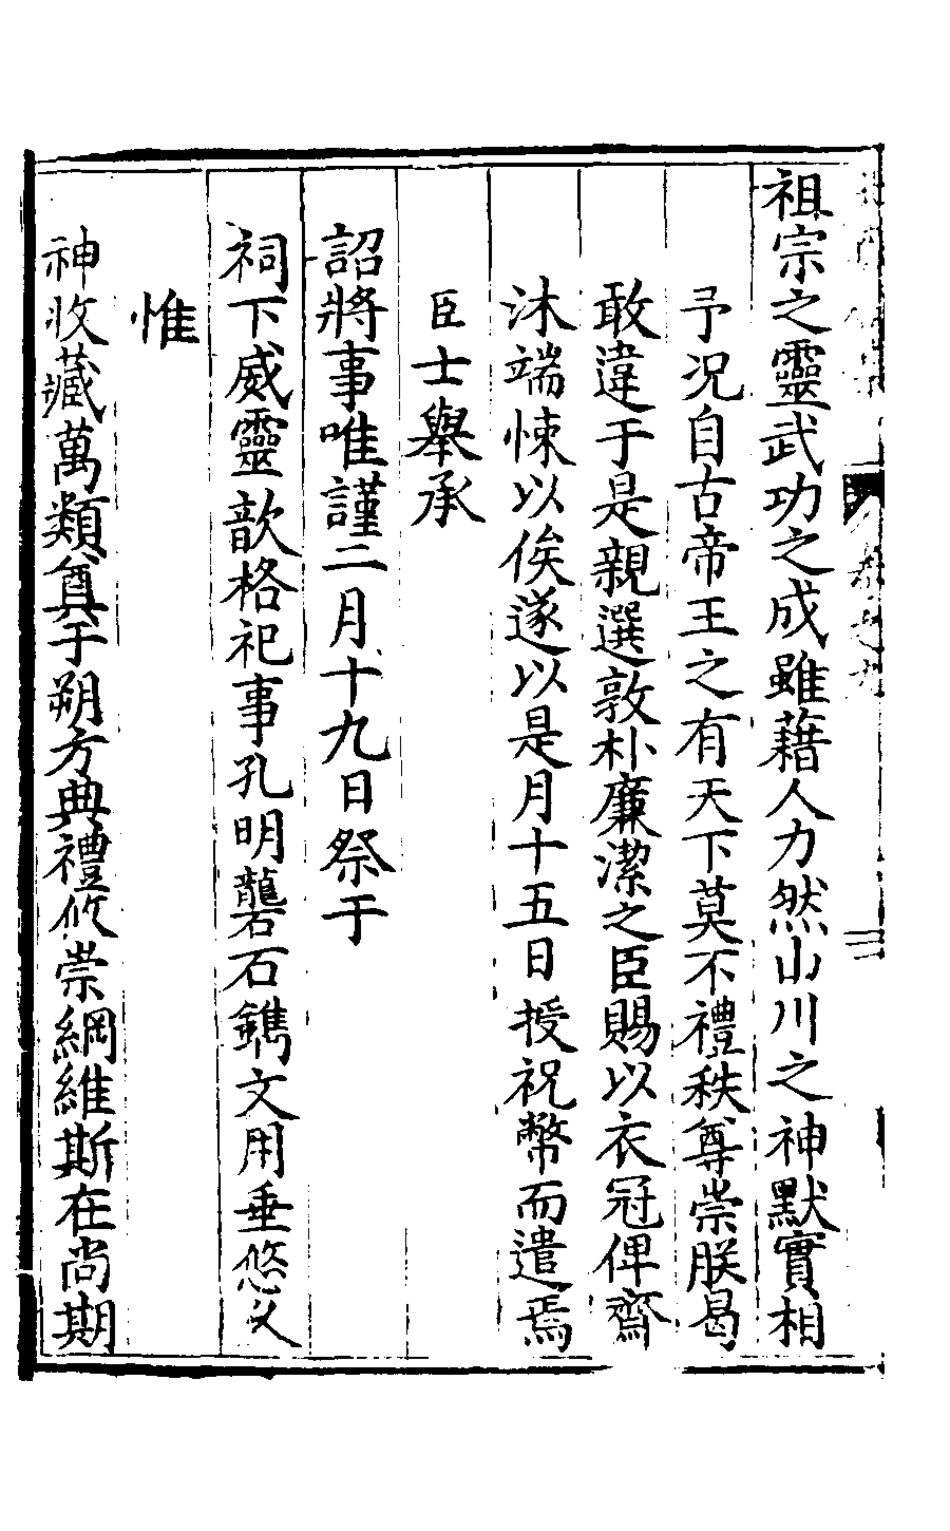 祖宗之靈武功之成雖藉人力然山川之神默實相
予況自古帝王之有天下莫不禮秩尊崇朕曷
敢違于是親選敦朴廉潔之臣賜以衣冠俾齋
沐端悚以俟遂以是月十五日授祝幣而遣焉
臣士舉承
詔將事唯謹二月十九日祭于
祠下威靈歆格祀事孔明礲石鐫文用垂悠久
惟
神收藏萬類奠于朔方典禮攸崇綱維斯在尚期